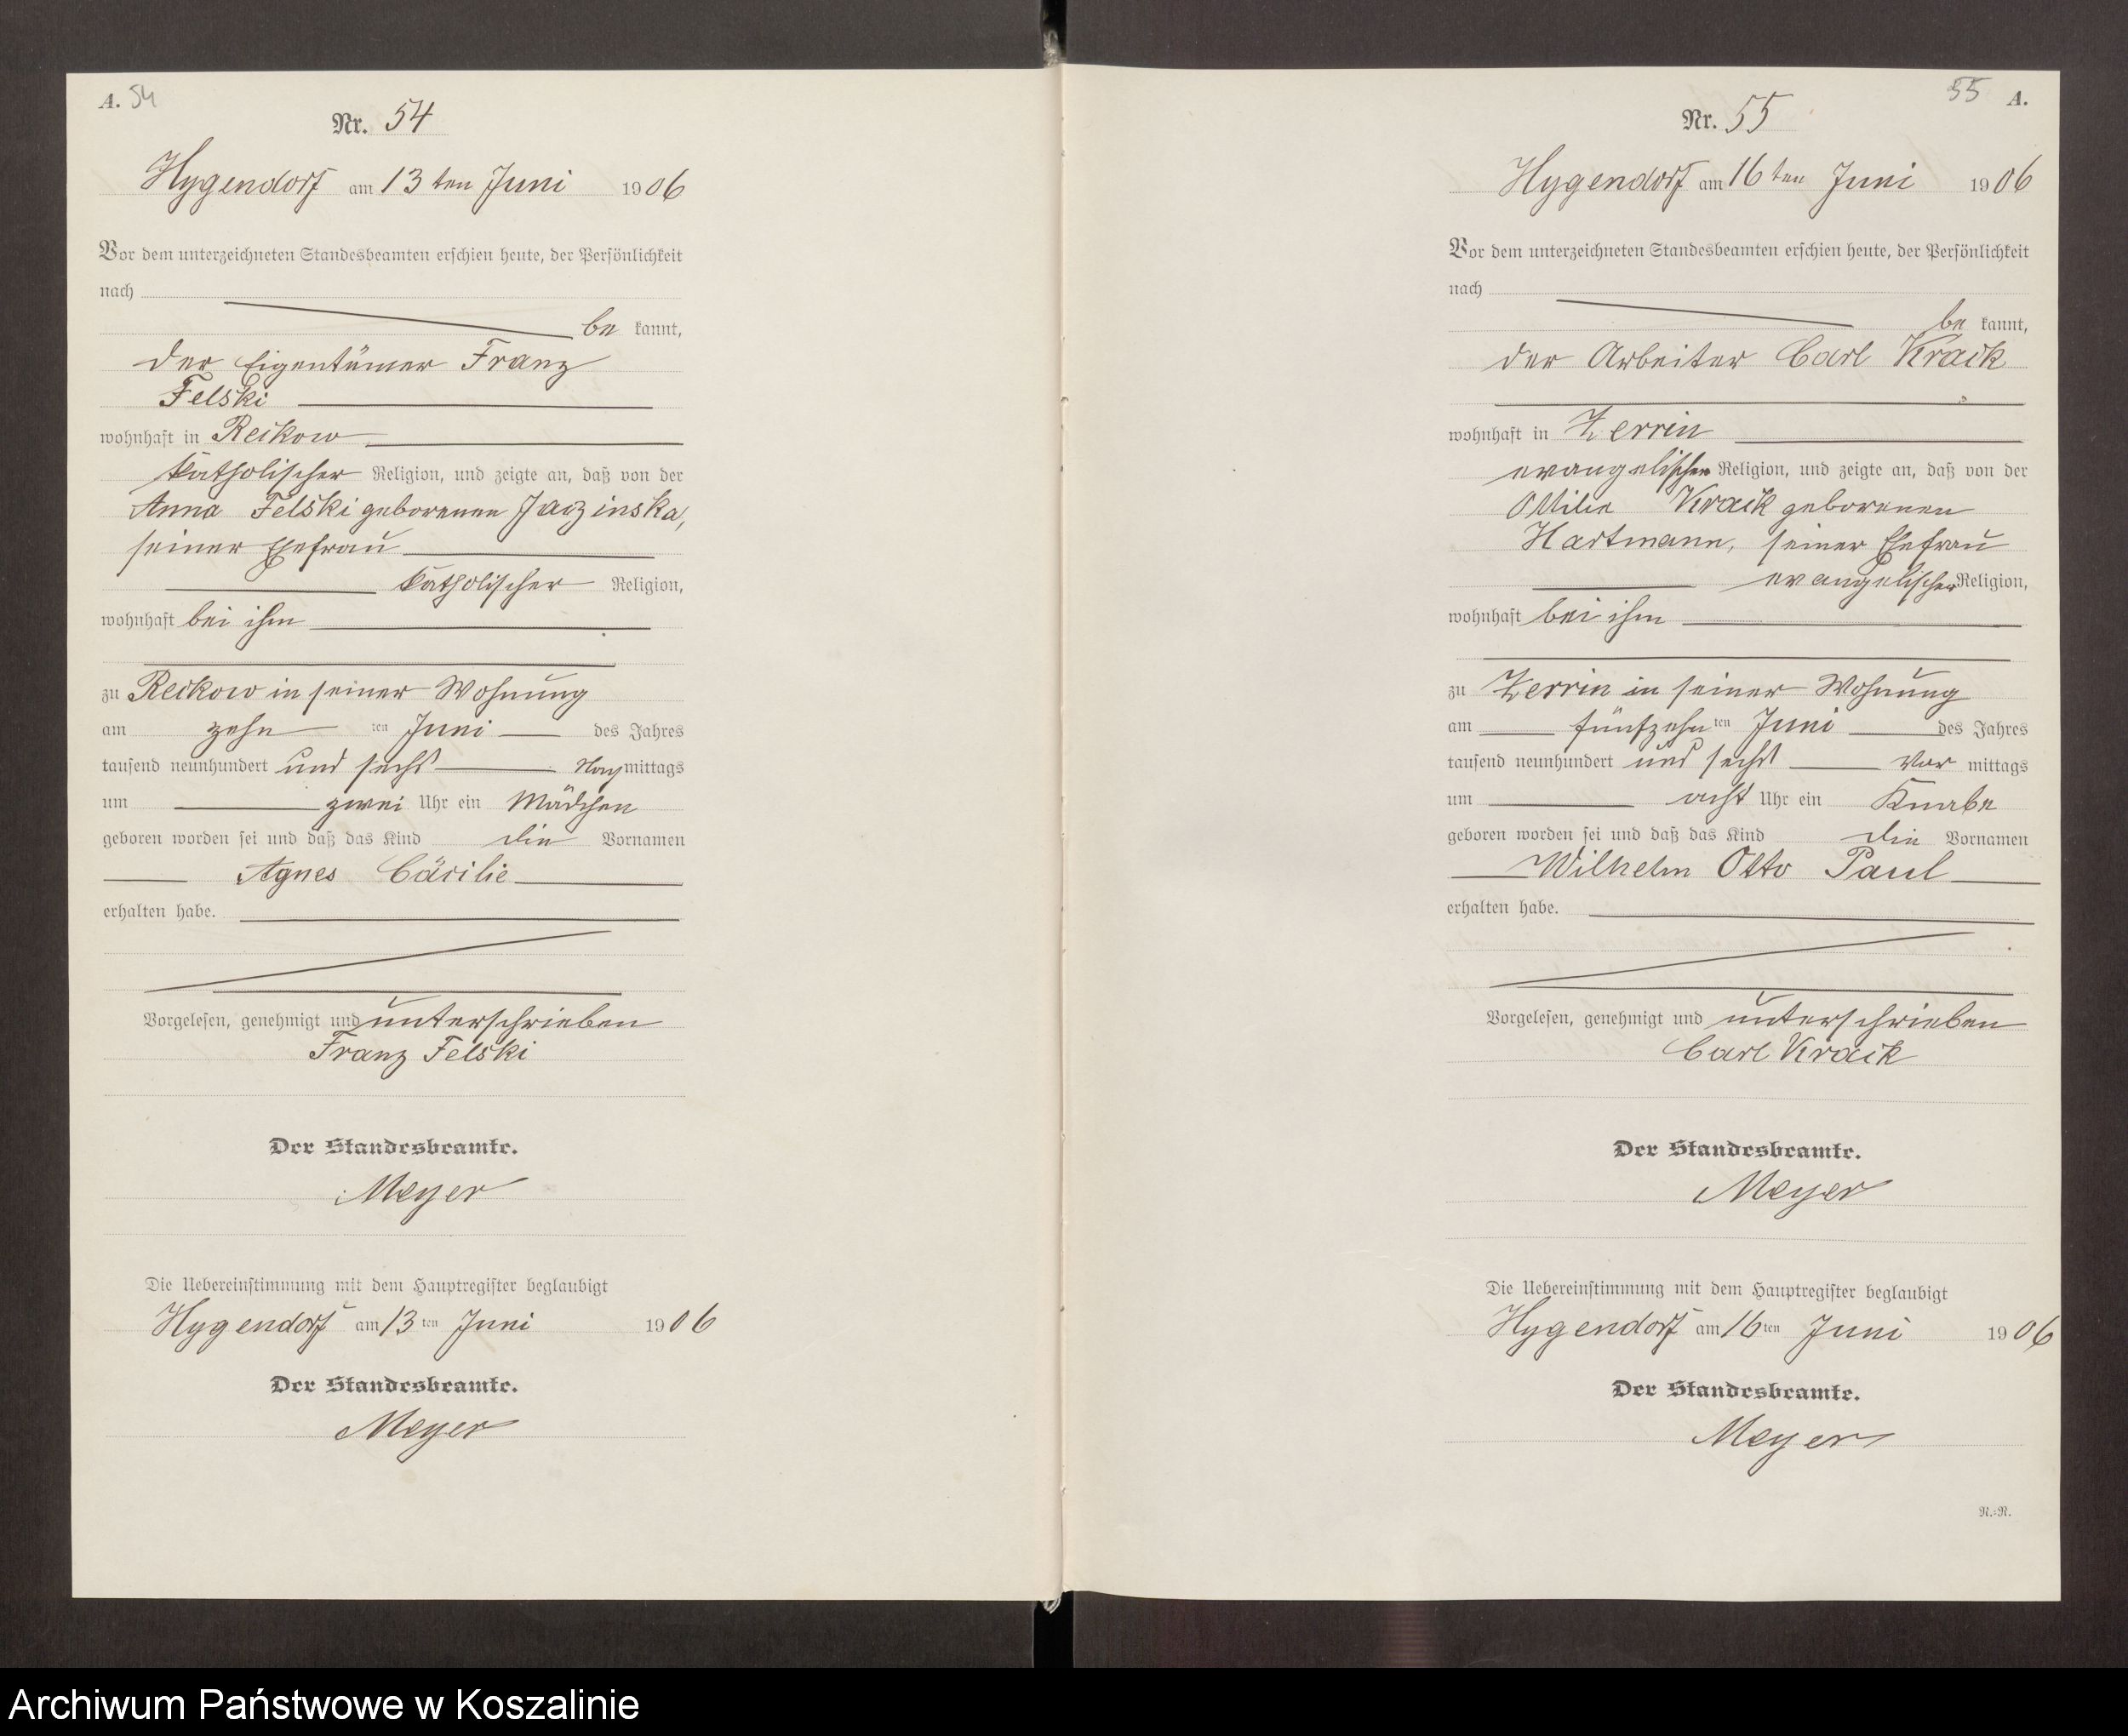 A. 54
Nr. 54
Hygendorf am 13 ten Juni 1906
Vor dem unterzeichneten Standesbeamten erschien heute, der Persönlichkeit
nach
be kannt,
der Eigentümer Franz
Felski
wohnhaft in Reckow
katholischer Religion, und zeigte an, daß von der
Anna Felski geborenen Jaczinska,
seiner Ehefrau
katholischer Religion,
wohnhaft bei ihm
zu Reckow in seiner Wohnung
am zehn ten Juni des Jahres
tausend neunhundert und sechs Nachmittags
um zwei Uhr ein Mädchen
geboren worden sei und daß das Kind die Vornamen
Agnes Cäcilie
erhalten habe.
Vorgelesen, genehmigt und unterschrieben
Franz Felski
Der Standesbeamte.
Meyer
Die Uebereinstimmung mit dem Hauptregister beglaubigt
Hygendorf am 13 ten Juni 1906
Der Standesbeamte.
Meyer
55 A.
Nr. 55
Hygendorf am 16 ten Juni 1906
Vor dem unterzeichneten Standesbeamten erschien heute, der Persönlichkeit
nach
be kannt,
der Arbeiter Carl Krack
wohnhaft in Zerrin
evangelischer Religion, und zeigte an, daß von der
Ottilie Krack geborenen
Hartmann, seiner Ehefrau
evangelischer Religion,
wohnhaft bei ihm
zu Zerrin in seiner Wohnung
am fünfzehn ten Juni des Jahres
tausend neunhundert und sechs Vor mittags
um acht Uhr ein Knabe
geboren worden sei und daß das Kind die Vornamen
Wilhelm Otto Paul
erhalten habe.
Vorgelesen, genehmigt und unterschrieben
Carl Krack
Der Standesbeamte.
Meyer
Die Uebereinstimmung mit dem Hauptregister beglaubigt
Hygendorf am 16 ten Juni 1906
Der Standesbeamte.
Meyer
R.=R.
Archiwum Państwowe w Koszalinie